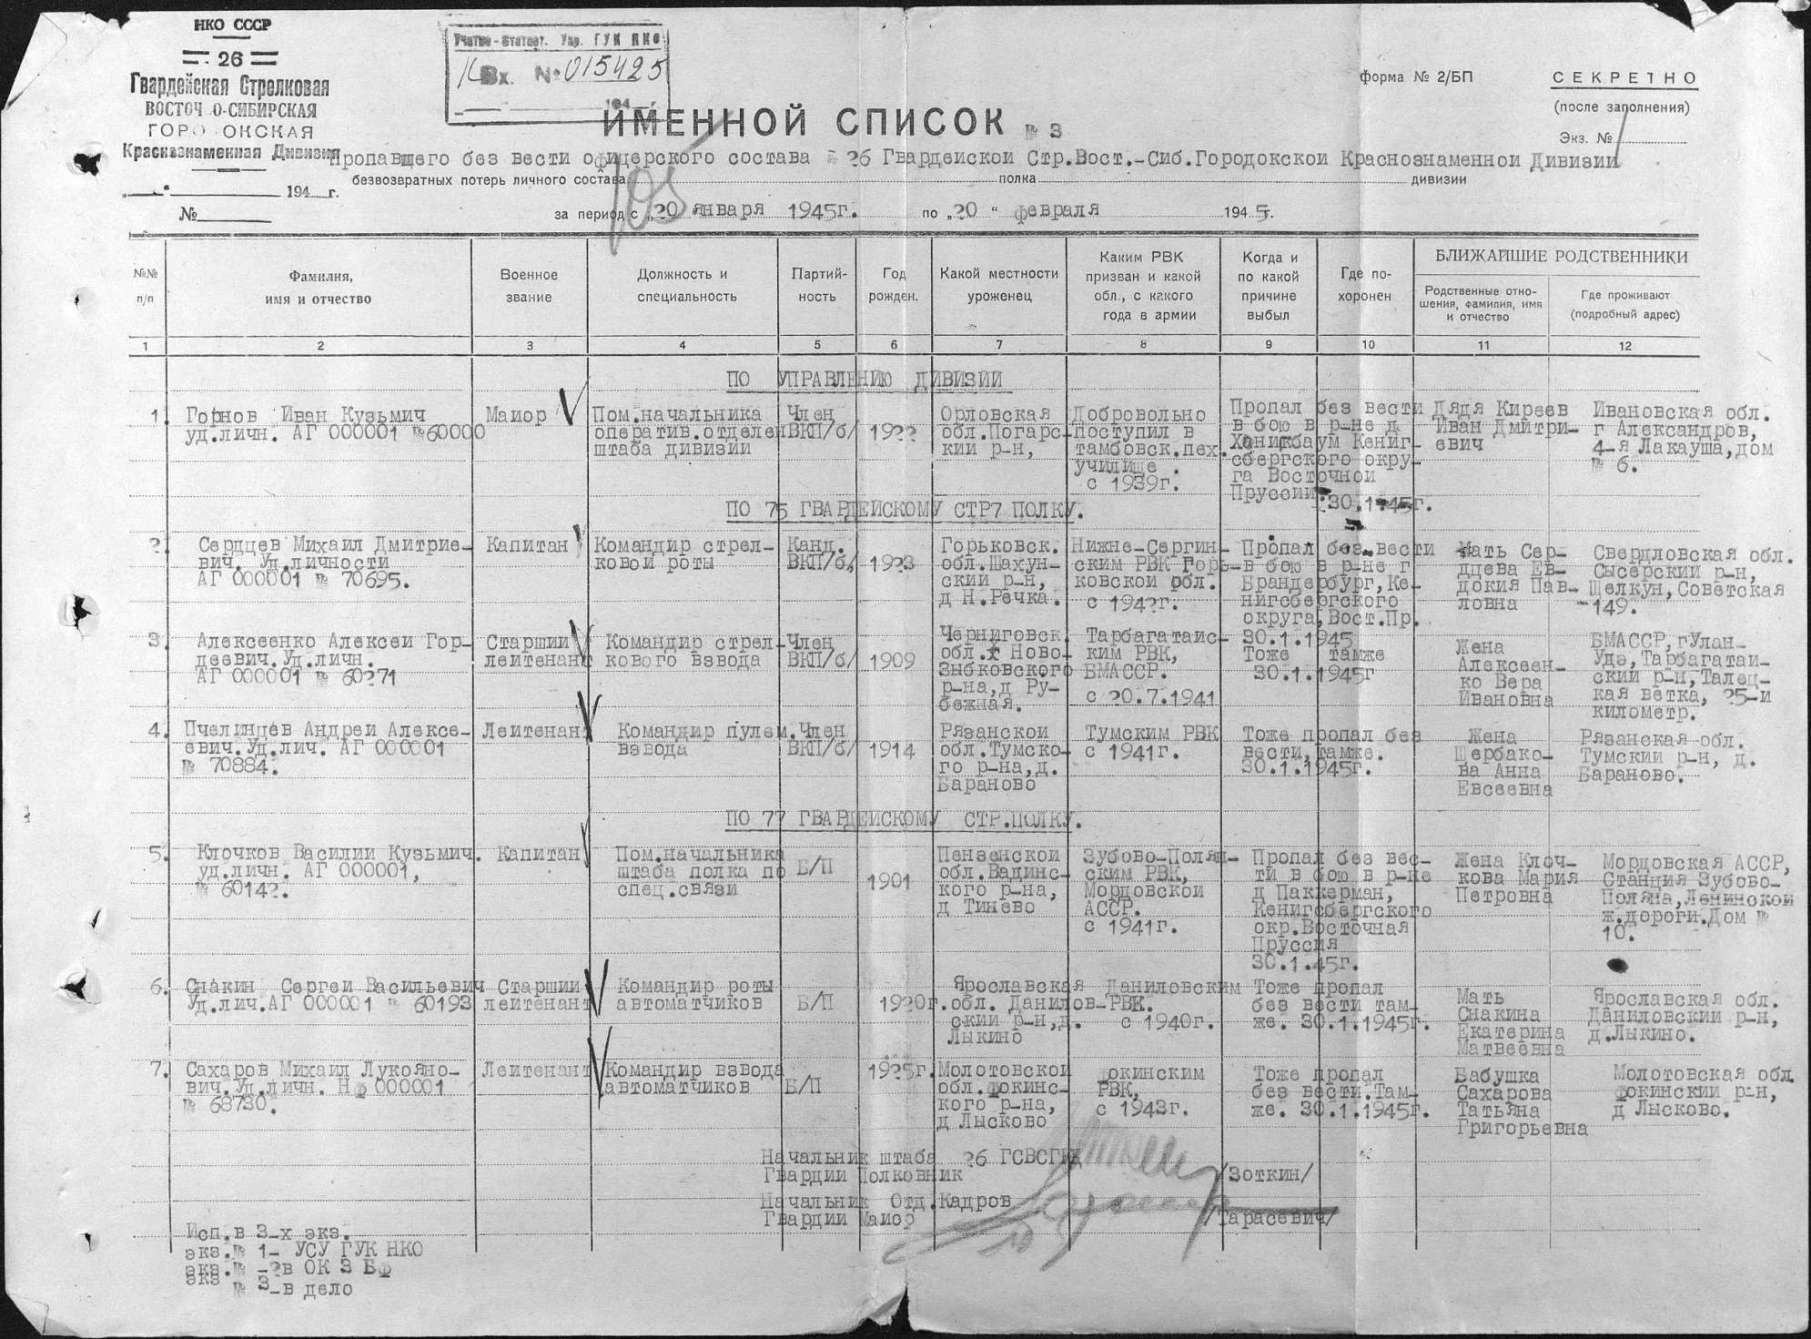 НКО СССР
26
Гвардейская Стрелковая
ВОСТОЧ О-СИБИРСКАЯ
ГОРО ОКСКАЯ
Краснознаменная Дивизия
„ “ 194 г.
№
Учетно-Статист. Упр. ГУК НКО
Вх. № 015425
194
форма № 2/БП
СЕКРЕТНО
(после заполнения)
Экз. № 1
ИМЕННОЙ СПИСОК № 3
Пропавшего без вести офицерского состава 26 Гвардейской Стр.Вост.-Сиб.Городокской Краснознаменной Дивизии
безвозвратных потерь личного состава полка дивизии
за период с „20 января 1945г. по „20 “ февраля 1945г.
№№ п/п
Фамилия, имя и отчество
Военное звание
Должность и специальность
Партийность
Год рожден.
Какой местности уроженец
Каким РВК призван и какой обл., с какого года в армии
Когда и по какой причине выбыл
Где похоронен
БЛИЖАЙШИЕ РОДСТВЕННИКИ
Родственные отношения, фамилия, имя и отчество
Где проживают (подробный адрес)
1 2 3 4 5 6 7 8 9 10 11 12
ПО УПРАВЛЕНИЮ ДИВИЗИИ
1. Горнов Иван Кузьмич
уд.личн. АГ 000001 №60000
Майор
Пом.начальника
оператив.отделен
штаба дивизии
Член
ВКП/б/
1922
Орловская
обл.Погарс-
кий р-н,
Добровольно
поступил в
тамбовск.пех.
училище .
с 1939г.
Пропал без вести
в бою в р-не д
Ханигсбаум Кениг-
сбергского окру-
га Восточной
Пруссии
30.1.45г.
Дядя Киреев
Иван Дмитри-
евич
Ивановская обл.
г Александров,
4-я Лакауша,дом
№ 6.
ПО 75 ГВАРДЕЙСКОМУ СТР7 ПОЛКУ.
2. Сердцев Михаил Дмитрие-
вич. Уд.личности
АГ 000001 № 70695.
Капитан
Командир стрел-
ковой роты
Канд.
ВКП/б,
1923
Горьковск.
обл.Шахун-
ский р-н,
д Н.Речка.
Нижне-Сергин-
ским РВК Горь-
ковской обл.
с 1942г.
Пропал без вести
в бою в р-не г
Брандербург,Ке-
нигсбергского
округа,Вост.Пр.
30.1.1945
Мать Сер-
дцева Ев-
докия Пав-
ловна
Свердловская обл.
Сысерский р-н,
Щелкун,Советская
-149.
3. Алексеенко Алексей Гор-
деевич.Уд.личн.
АГ 000001 № 60271
Старший
лейтенант
Командир стрел-
кового взвода
Член
ВКП/б/
1909
Черниговск.
обл. Ново-
зыбковского
р-на,д Ру-
бежная.
Тарбагатайс-
ким РВК,
БМАССР.
с 20.7.1941
Тоже тамже
30.1.1945г
Жена
Алексеен-
ко Вера
Ивановна
БМАССР,гУлан-
Удэ,Тарбагатай-
ский р-н,Талец-
кая ветка, 25-й
километр.
4. Пчелинцев Андрей Алексе-
евич.Уд.лич. АГ 000001
№ 70884.
Лейтенант
Командир пулем.
взвода
Член
ВКП/б/
1914
Рязанской
обл.Тумско-
го р-на,д.
Бараново
Тумским РВК
с 1941г.
Тоже пропал без
вести,тамже.
30.1.1945г.
Жена
Щербако-
ва Анна
Евсеевна
Рязанская обл.
Тумский р-н, д.
Бараново.
ПО 77 ГВАРДЕЙСКОМУ СТР.ПОЛКУ.
5. Клочков Василий Кузьмич.
уд.личн. АГ 000001,
№ 60142.
Капитан
Пом.начальника
штаба полка по
спец.связи
Б/П
1901
Пензенской
обл.Вадинс-
кого р-на,
д Тинево
Зубово-Полян-
ским РВК,
Мордовской
АССР.
с 1941г.
Пропал без вес-
ти в бою в р-не
д Паккерман,
Кенигсбергского
окр.Восточная
Пруссия
30.1.45г.
Жена Клоч-
кова Мария
Петровна
Мордовская АССР,
Станция Зубово-
Поляна,Ленинской
ж.дороги.Дом №
10.
6. Снакин Сергей Васильевич
Уд.лич.АГ 000001 № 60193
Старший
лейтенант
Командир роты
автоматчиков
Б/П
1920г.
Ярославская
обл. Данилов-
ский р-н,д.
Лыкино
Даниловским
РВК.
с 1940г.
Тоже пропал
без вести там-
же. 30.1.1945г.
Мать
Снакина
Екатерина
Матвеевна
Ярославская обл.
Даниловский р-н,
д.Лыкино.
7. Сахаров Михаил Лукояно-
вич.Уд.личн. НФ 000001
№ 68730.
Лейтенант
Командир взвода
автоматчиков
Б/П
1925г.
Молотовской
обл.Фокинс-
кого р-на,
д Лысково
окинским
РВК,
с 1943г.
Тоже пропал
без вести.Там-
же. 30.1.1945г.
Бабушка
Сахарова
Татьяна
Григорьевна
Молотовская обл.
Фокинский р-н,
д Лысково.
Начальник штаба 26 ГСВСГКД
Гвардии Полковник
/Зоткин/
Начальник Отд.Кадров
Гвардии Майор
/Тарасевич/
Исп.в 3-х экз.
экз.№ 1- УСУ ГУК НКО
экз.№ -2в ОК 3 БФ
экз № 3-в дело